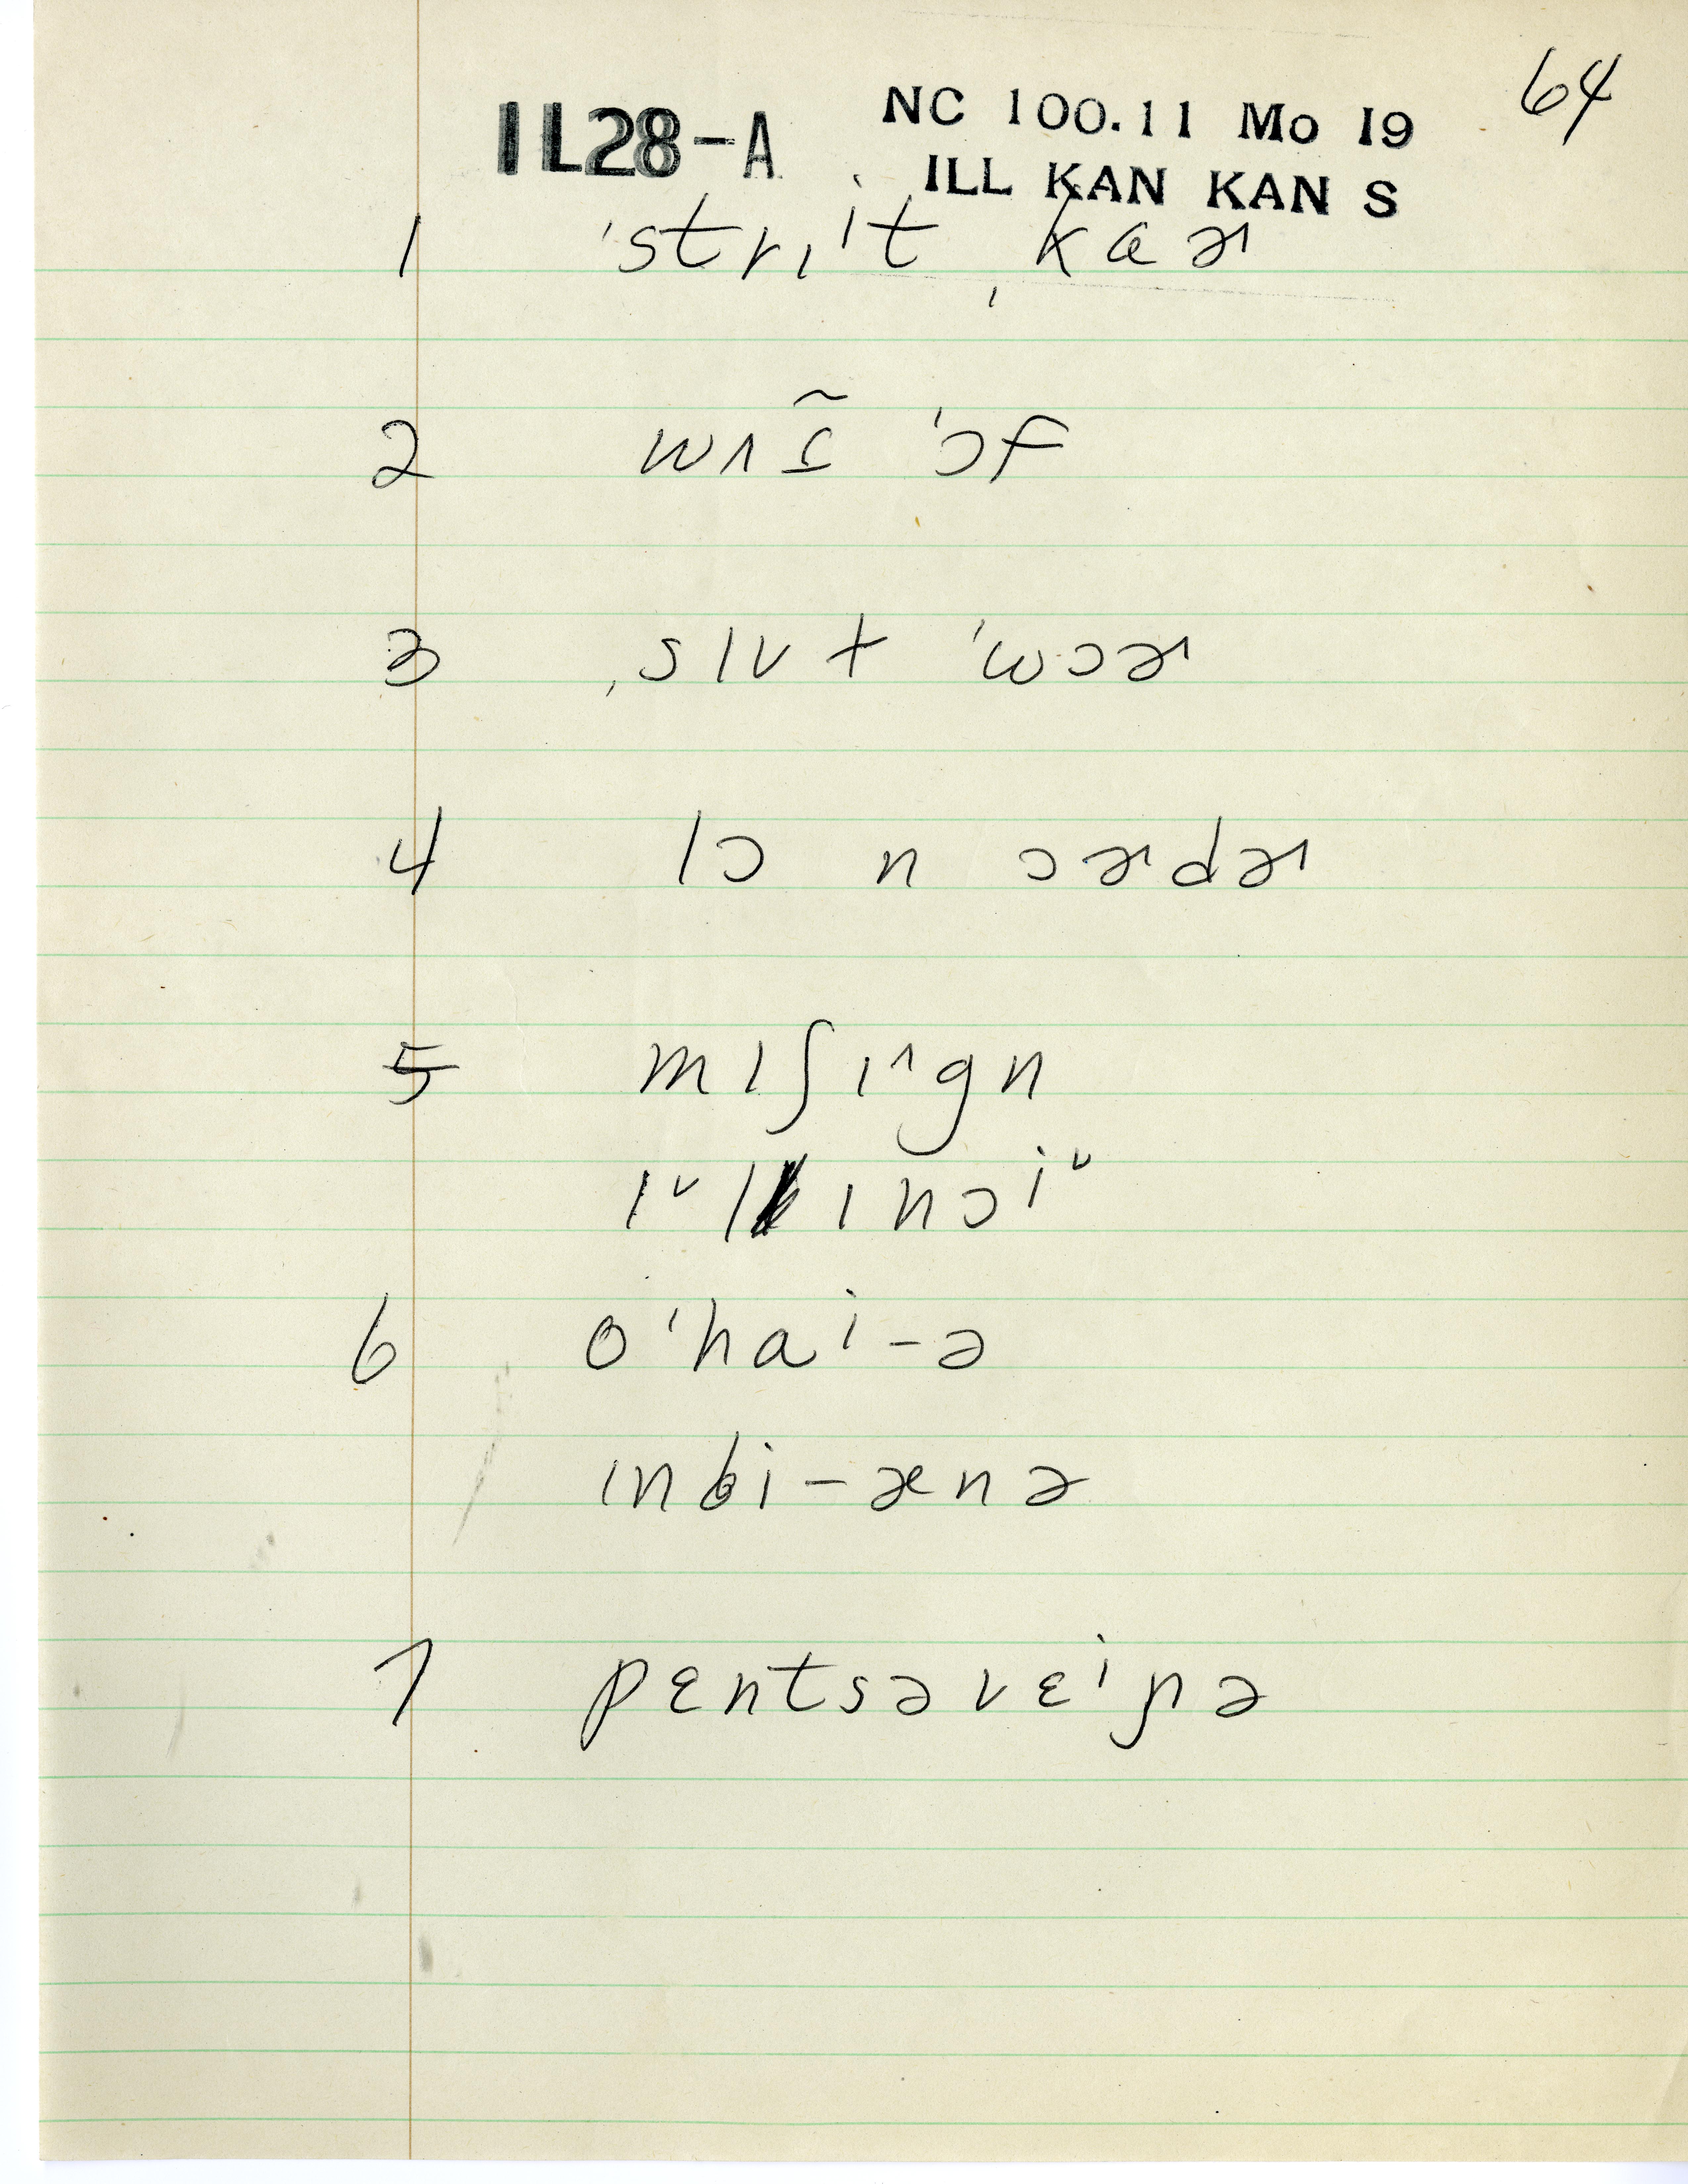 64
1L28-A NC 100.11 Mo I9
ILL KAN KAN S
1 ˈstrɪˈt ˌkaɚ
2 wʌɪ̃ ˈɔf
3 ˌslʌt ˈwɔɚ
4 lɔ n ɔɚdɚ
5 mɪʃɪ^gn
ɪˇlɪnɔiˇ
6 oˈhai-ə
indi-ænə
7 pɛntsəvɛiɲə